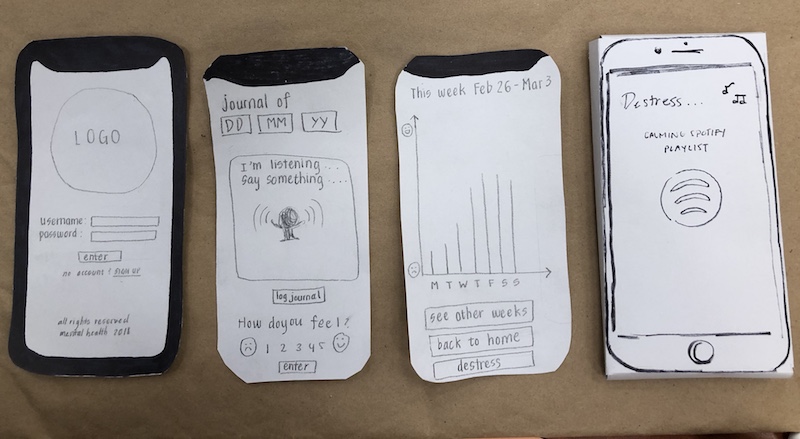 LOGO
username:
password:
enter
no account? SIGN UP
all rights reserved
mental health 2018
journal of
DD MM YY
I'm listening ...
say something ....
log journal
How do you feel?
1 2 3 4 5
enter
This week Feb 26 - Mar 3
M T W T F S S
see other weeks
back to home
destress
Destress...
CALMING SPOTIFY
PLAYLIST